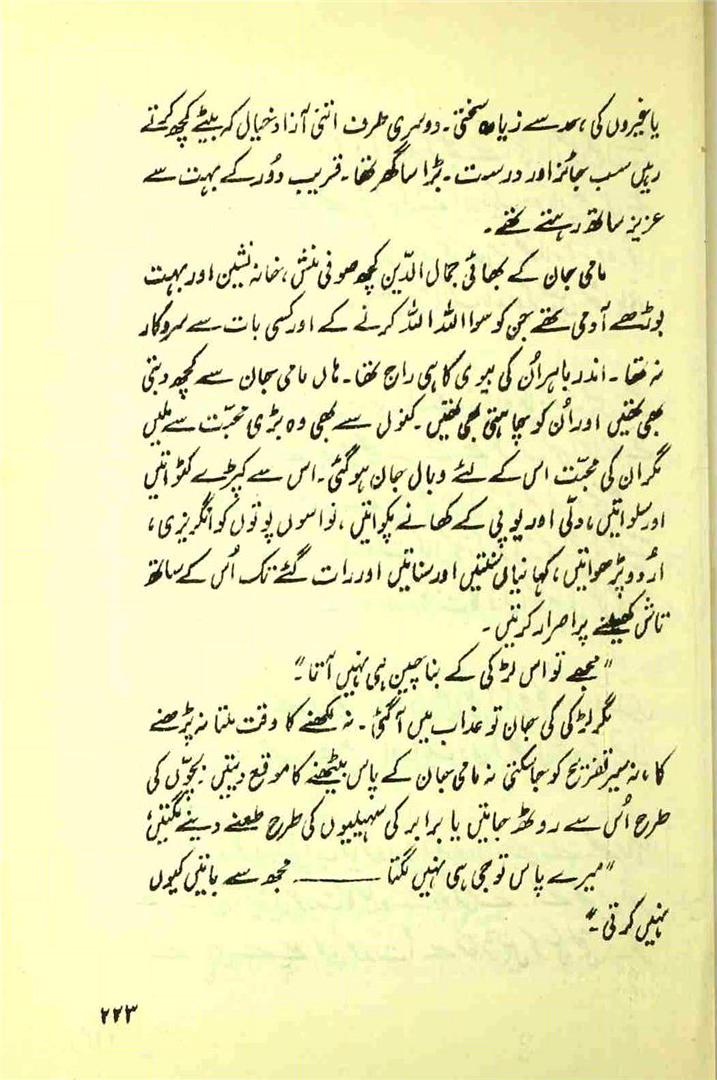 یا غیروں کی، حد سے زیادہ سختی۔ دوسری طرف اتنی آزاد خیال کہ بیٹے کچھ کرتے
رہیں سب جائز اور درست۔ بڑا سا گھر تھا۔ قریب دُور کے بہت سے
عزیز ساتھ رہتے تھے۔
مامی جان کے بھائی جمال الدّین کچھ صوفی منش، خانہ نشین اور بہت
بوڑھے آدمی تھے جن کو سوا اللہ اللہ کرنے کے اور کسی بات سے سروکار
نہ تھا۔ اندر باہر اُن کی بیوی کا ہی راج تھا۔ ہاں مامی جان سے کچھ دبتی
بھی تھیں اور اُن کو چاہتی بھی تھیں۔ کنول سے بھی وہ بڑی محبّت سے ملیں
مگر ان کی محبّت اس کے لئے وبال جان ہو گئی۔ اس سے کپڑے کٹواتیں
اور سلواتیں، دلّی اور یوپی کے کھانے پکواتیں، نواسوں پوتوں کو انگریزی،
اردو پڑھواتیں، کہانیاں سنتیں اور سناتیں اور رات گئے تک اُس کے ساتھ
تاش کھیلنے پر اصرار کرتیں۔
"مجھے تو اس لڑکی کے بنا چین ہی نہیں آتا۔"
مگر لڑکی کی جان تو عذاب میں آ گئی۔ نہ لکھنے کا وقت ملتا نہ پڑھنے
کا، نہ سیر و تفریح کو جا سکتی نہ مامی جان کے پاس بیٹھنے کا موقع دیتیں۔ بچوّں کی
طرح اُس سے روٹھ جاتیں یا برابر کی سہیلیوں کی طرح طعنے دینے لگتیں؛
"میرے پاس تو جی ہی نہیں لگتا ——— مجھ سے باتیں کیوں
نہیں کرتی۔"
۲۲۳